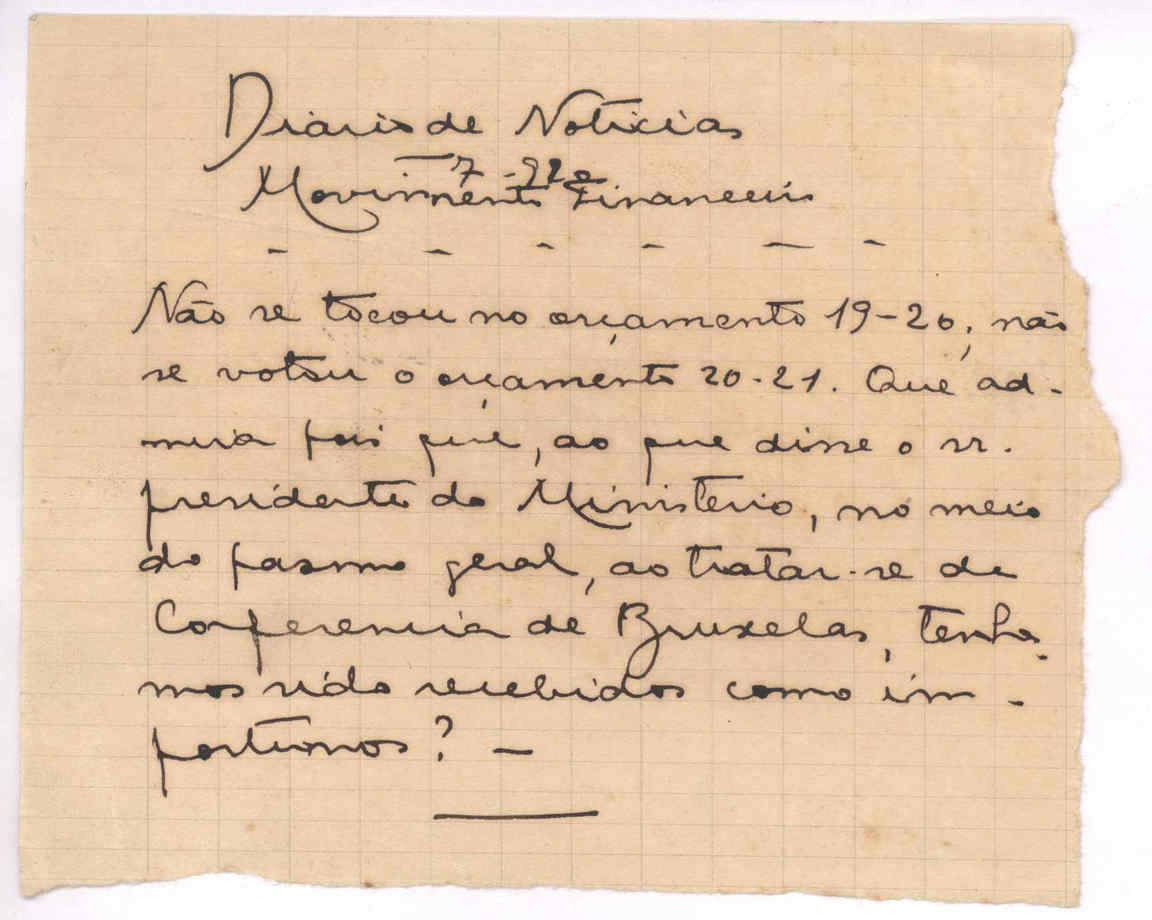 Diario de Noticias
7-920
Movimento Financeiro
- - - - - -
Não se tocou no orçamento 19-20, não
se votou o orçamento 20-21. Que ad-
mira pois que, ao que disse o sr.
presidente do Ministério, no meio
do pasmo geral, ao tratar-se da
Conferencia de Bruxelas, tenha-
mos sido recebidos como im-
portunos? —